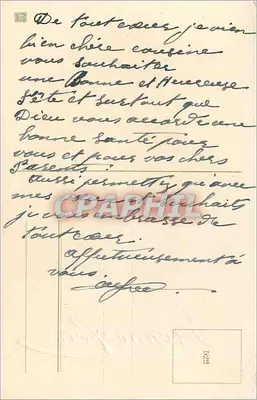 De tout cœur je vien
bien chère cousine
vous souhaiter
une Bonne et Heureuse
Fête et surtout que
Dieu vous accorde une
bonne santé pour
vous et pour vos chers
Parents!
aussi permettez qu'avec
mes souhaits
je vous embrasse de
tout cœur.
affectueusement à
vous.
CPAPHIL
522